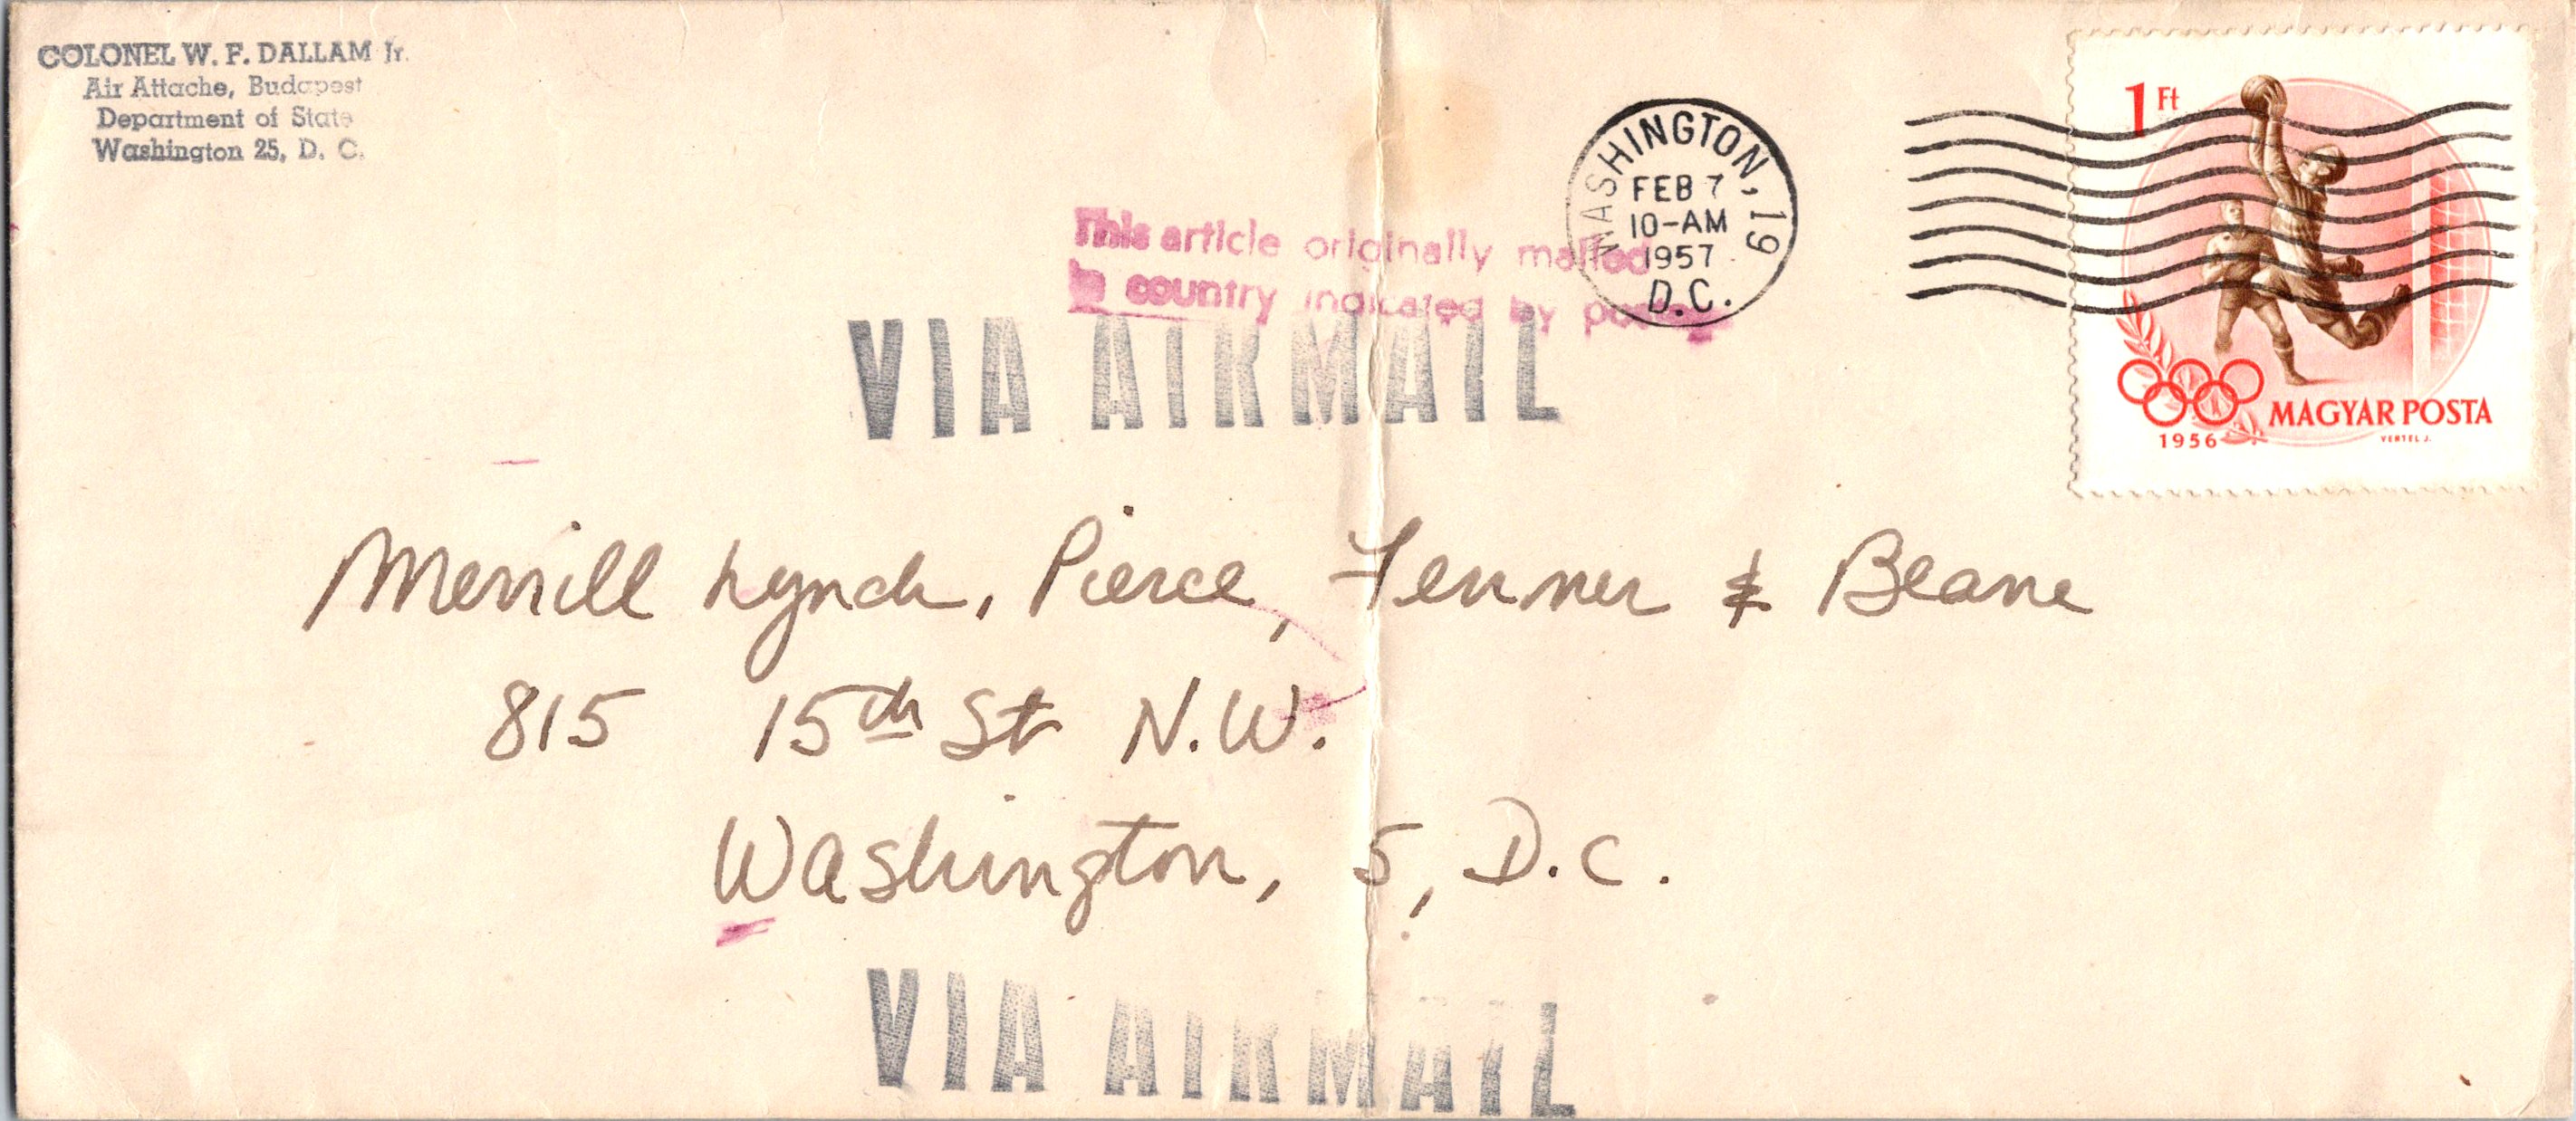 COLONEL W. F. DALLAM Jr.
Air Attache, Budapest
Department of State
Washington 25, D. C.
This article originally mailed
in country indicated by postage
WASHINGTON, 19
FEB 7
10-AM
1957
D.C.
1 Ft
MAGYAR POSTA
1956
VERTEL J.
VIA AIRMAIL
Merrill Lynch, Pierce, Fenner & Beane
815 15th St N.W.
Washington, 5, D.C.
VIA AIRMAIL